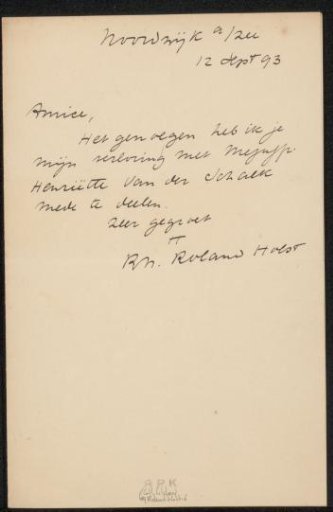 Noordwijk a/zee
12 Sept 93
Amice,
Het genoegen heb ik je
mijn verloving met Mejuffr.
Henriëtte Van der Schalk
mede te deelen.
Zeer gegroet
tt
R.N. Roland Holst